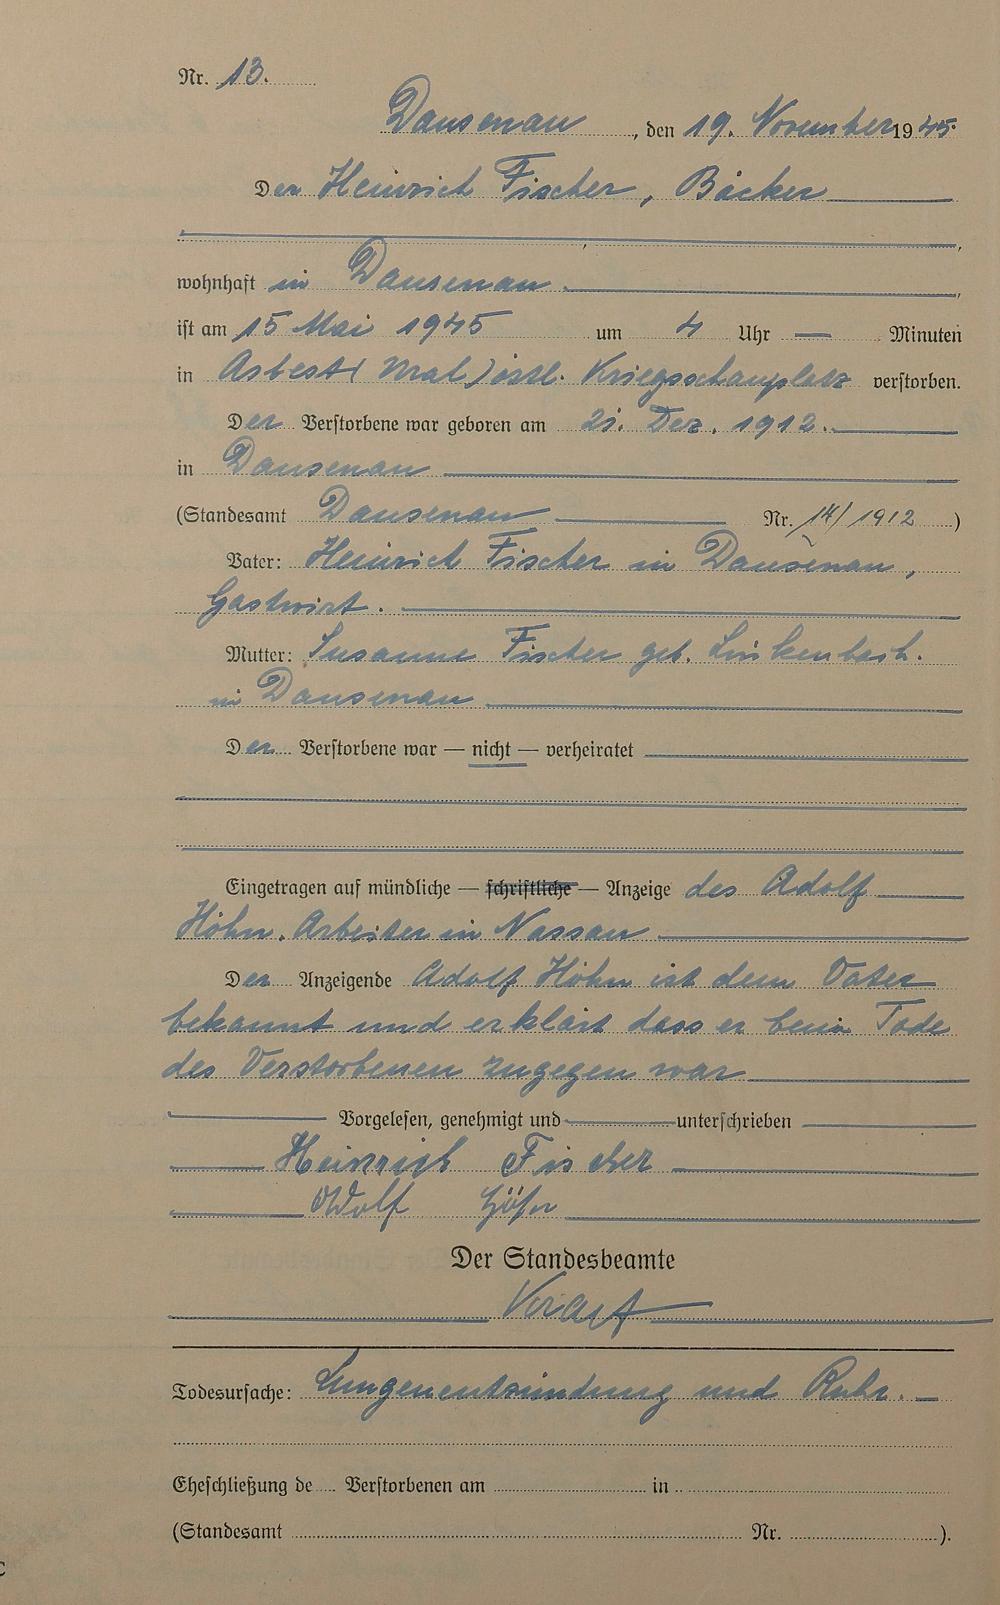 Nr. 13.
Dausenau, den 19. November 1945.
Der Heinrich Fischer, Bäcker
wohnhaft in Dausenau.
ist am 15 Mai 1945 um 4 Uhr — Minuten
in Asbest (Ural) östl. Kriegsschauplatz verstorben.
Der Verstorbene war geboren am 21. Dez. 1912.
in Dausenau
(Standesamt Dausenau Nr. 14/1912)
Vater: Heinrich Fischer in Dausenau,
Gastwirt.
Mutter: Susanne Fischer geb. Linkenbach.
in Dausenau
Der Verstorbene war — nicht — verheiratet
Eingetragen auf mündliche — schriftliche — Anzeige des Adolf
Höhn. Arbeiter in Nassau
Der Anzeigende Adolf Höhn ist dem Vater
bekannt und erklärt dass er beim Tode
des Verstorbenen zugegen war
Vorgelesen, genehmigt und unterschrieben
Heinrich Fischer
Adolf Höhn
Der Standesbeamte
Todesursache: Lungenentzündung und Ruhr.
Eheschließung de Verstorbenen am in
(Standesamt Nr. ).